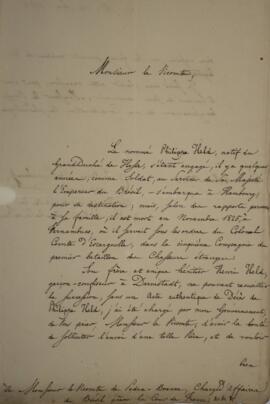 Monsieur le Vicomte,
Le nommé Philippe Held, natif du
Grand Duché de Hesse, s'étant engagé, il y a quelques
années, comme Soldat, au Service de Sa Majesté
l'Empereur du Brésil, s'embarqua à Hambourg,
pour sa destination; mais, selon des rapports parvenus
à sa famille, il est mort en Novembre 1825, à
Pernambuco, où il servit sous les ordres du Colonel
Comte d'Escargnolle, dans la cinquième Compagnie du
premier bataillon de Chasseurs étrangers.
Son frère et unique héritier Henri Held,
garçon-confiseur à Darmstadt, ne pouvant recueillir
la succession, sans un Acte authentique de Décès de
Philippe Held, j'ai été chargé par mon Gouvernement,
de Vous prier, Monsieur le Vicomte, d'avoir la bonté
de solliciter l'envoi d'une telle pièce, et de vouloir
bien
À Monsieur le Vicomte de Pedra Branca, Chargé d'Affaires
du Brésil près la Cour de France